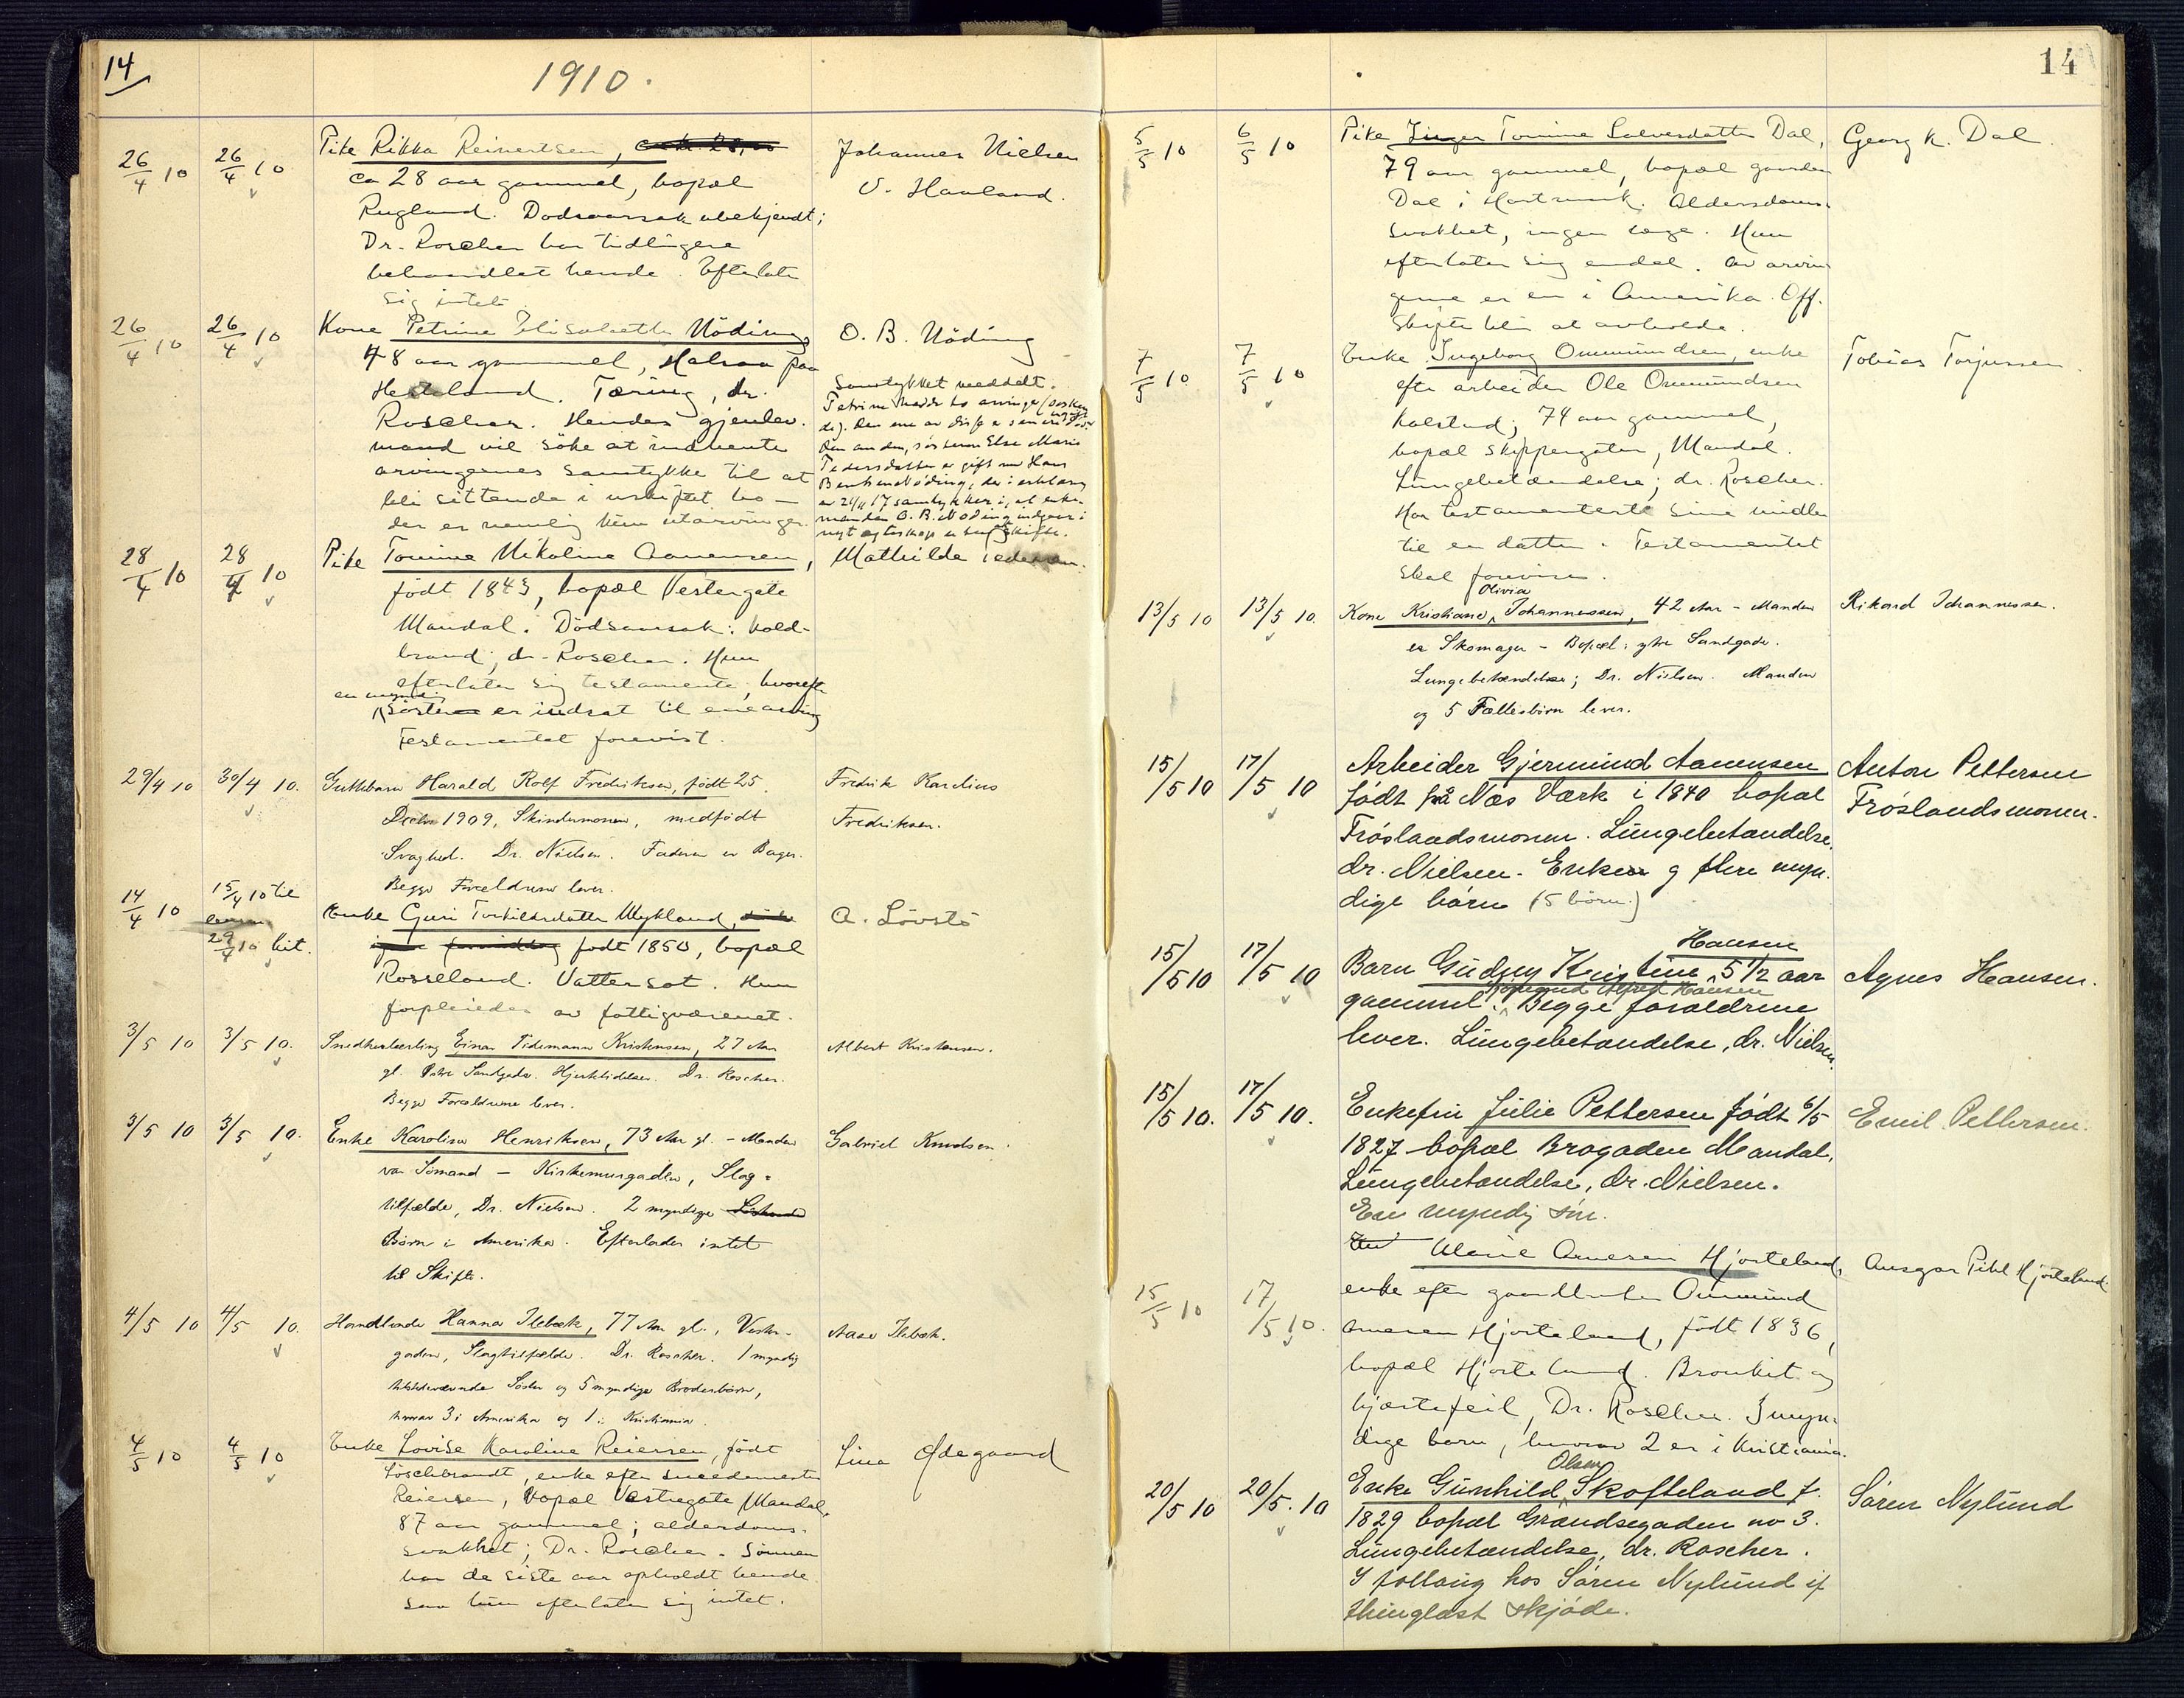 14
1910.
26/4 10 26/4 10 Pike Rikka Reinertsen, Johannes Nielsen
ca 28 aar gammel, bopæl V. Haaland.
Rugland. Dødsaarsak ubekjendt;
Dr. Roscher har tidligere
behandlet hende. Efterlater
sig intet.
26/4 10 26/4 10 Kone Petrine Elisabeth Nöding O. B. Nöding
48 aar gammel, Halsaa paa
Tæring, dr. Samtykket meddelt.
Roscher. Hendes gjenlev. Petrine hadde to arvinger
mand vil söke at indhente Den anden, søsteren Else Marie
arvingernes samtykke til at Pedersdatter er gift med Hans
bli sittende i uskiftet bo — Bentsen Nöding, der i erklæring
der er nemlig kun utarvinger. av 21/11 17 samtykker i, at enke-
manden O. B. Nöding indgaar i
nyt egteskap uten skifte.
28/4 10 28/4 10 Pike Tomine Nikoline Aanensen, Mathilde
födt 1843, bopæl Vestergate
Mandal. Dödsaarsak: kold-
brand; dr. Roscher. Hun
efterlater sig testamente, hvorefter
en myndig
söster er indsat til enearving
Testamentet forevist.
29/4 10 30/4 10. Guttebarn Harald Rolf Fredriksen, født 25. Fredrik Karelius
Decbr 1909, Skindermoen, medfødt Fredriksen.
Svaghed. Dr. Nielsen. Faderen er Bager.
Begge Forældrene lever.
14/4 10 15/4 10 til Enke Guri Torkildsdatter Mykland, A. Lövstö
29/4 10 hit. født 1850, bopæl
Rosseland. Vattersot. Hun
forpleiedes av fattigvæsenet.
3/5 10 3/5 10. Snedkerlærling Einar Tidemann Kristensen, 27 Aar Albert Kristensen.
gl. Østre Sandgade. Hjertelidelse. Dr. Roscher.
Begge Forældrene lever.
3/5 10 3/5 10. Enke Karoline Henriksen, 73 Aar gl. – Manden Gabriel Knudsen.
var Sømand – Kirkemursgaden, Slag-
tilfælde, Dr. Nielsen. 2 myndige
Børn i Amerika. Efterlader intet
til Skifte.
4/5 10 4/5 10. Handlende Hanna Ilebæk, 77 Aar gl., Vester- Aase Ilebæk.
gaden, Slagtilfælde. Dr. Roscher. 1 myndig
tilstedeværende Søster og 5 myndige Broderbørn,
hvorav 3 i Amerika og 1 i Kristiania.
4/5 10 4/5 10 Enke Lovise Karoline Reiersen, födt Lina Ødegaard
Löschbrandt, enke efter smedemester
Reiersen, bopæl Vestregate, Mandal,
87 aar gammel; alderdoms-
svakhet; Dr. Roscher. Sönnen
har de siste aar opholdt hende
saa hun efterlater sig intet.
14
5/5 10 6/5 10 Pike Inger Tomine Salvesdatter Dal, Georg K. Dal.
79 aar gammel, bopæl gaarden
Dal i Hartmark. Alderdoms-
svakhet, ingen læge. Hun
efterlater sig endel. Av arvin-
gerne er en i Amerika. Off.
skifte blir at avholde.
7/5 10 7/5 10 Enke Ingeborg Ommundsen, enke Tobias Torjussen.
efter arbeider Ole Ommundsen
Kalstad; 74 aar gammel,
bopæl Skippergaten, Mandal.
Lungebetændelse; dr. Roscher.
Har testamentert sine midler
til en datter. Testamentet
skal forevises.
Olivia
13/5 10 13/5 10. Kone Kristiane Johannessen, 42 Aar – Manden Rikard Johannessen.
er Skomager – Bopæl: ytre Sandgade.
Lungebetændelse; Dr. Nielsen. Manden
og 5 Fællesbörn lever.
15/5 10 17/5 10 Arbeider Gjermund Aanensen Anton Pettersen
født på Næs Værk i 1840 bopæl Frøslandsmonen.
Frøslandsmonen. Lungebetændelse,
dr. Nielsen. Enken og flere myn-
dige børn (5 børn.)
Hansen
15/5 10 17/5 10 Barn Gudny Kristine 5 1/2 aar Agnes Hansen.
Alfred Hansen
gammel. Begge forældrene
lever. Lungebetændelse, dr. Nielsen.
15/5 10. 17/5 10. Enkefru Julie Pettersen født 6/5 Emil Pettersen.
1827 bopæl Brogaden Mandal.
Lungebetændelse, dr. Nielsen.
En myndig søn.
15/5 10 17/5 10. Marie Arnesen Hjorteland, Ansgar Pihl Hjorteland
enke efter gaardbruker Ommund
Arnesen Hjorteland, født 1836,
bopæl Hjorteland. Bronkit og
hjertefeil, Dr. Roscher. 3 myn-
dige barn, hvorav 2 er i Kristiania.
Olsen
20/5 10 20/5. 10 Enke Gunhild Skofteland f. Søren Nylund
1829 bopæl Grændsegaden no 3.
Lungebetændelse, dr. Roscher.
I follaug hos Søren Nylund if
thinglæst skjøde.